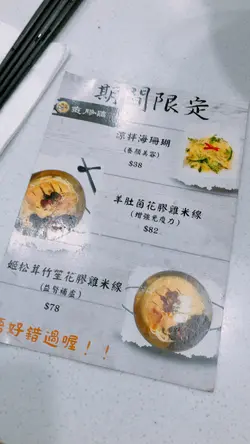 期間限定
涼拌海珊瑚
(養顏美容)
$38
羊肚菌花膠雞米線
(增強免疫力)
$82
姬松茸竹笙花膠雞米線
(益腎補虛)
$78
好錯過喔!!